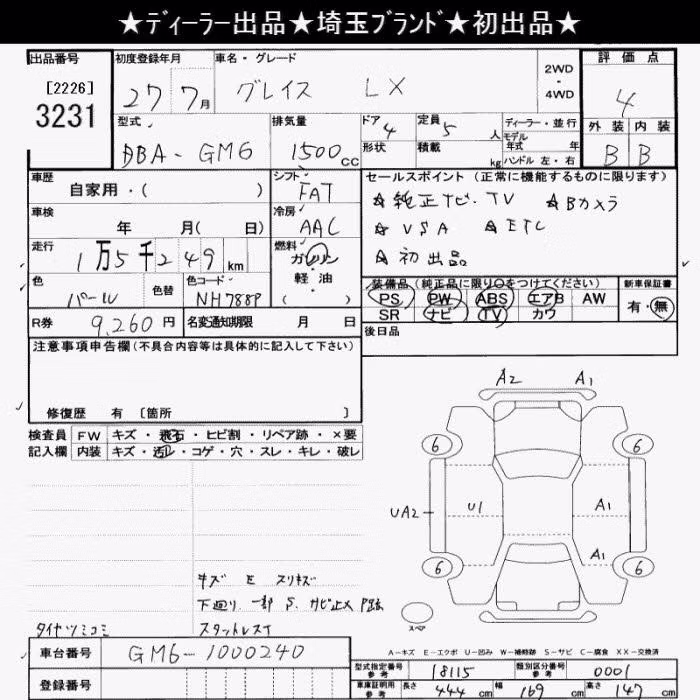 ★ディーラー出品★埼玉ブランド★初出品★
出品番号
[2226]
3231
初度登録年月
27 7月
車名・グレード
グレイス LX
2WD
・
4WD
評価点
4
外装 内装
B B
型式
DBA-GM6
排気量
1500cc
ドア 4
形状
定員 5 人
積載 kg
ディーラー・並行
モデル
年式 年
ハンドル 左・右
車歴
自家用・( )
シフト
FAT
車検
年 月( 日)
冷房
AAC
走行
1万5千249km
燃料
ガソリン
・
軽油
( )
色
パール
色替
色コード
NH788P
R券 9,260円
名変通知期限 月 日
セールスポイント (正常に機能するものに限ります)
☆純正ナビ・TV ☆Bカメラ
☆VSA ☆ETC
☆初出品
装備品(純正品に限り○をつけてください)
PS PW ABS エアB AW
SR ナビ TV カワ
新車保証書
有・無
後日品
注意事項申告欄(不具合内容等は具体的に記入して下さい)
修復歴 有 〔箇所 〕
検査員
記入欄
FW キズ・飛石・ヒビ割・リペア跡・×要
内装 キズ・汚レ・コゲ・穴・スレ・キレ・破レ
A2 A1
6 6
UA2 U1 A1
A1
6 6
スペア
キズ E スリキズ
下廻り 一部 S. サビ止メ
タイヤツミコミ スタットレス
A-キズ E-エクボ U-凹み W-補修跡 S-サビ C-腐食 XX-交換済
車台番号 GM6-1000240
登録番号
型式指定番号
参考
18115
類別区分番号
参考
0001
車庫証明用
参考
長さ 444 cm 幅 169 cm 高さ 147 cm